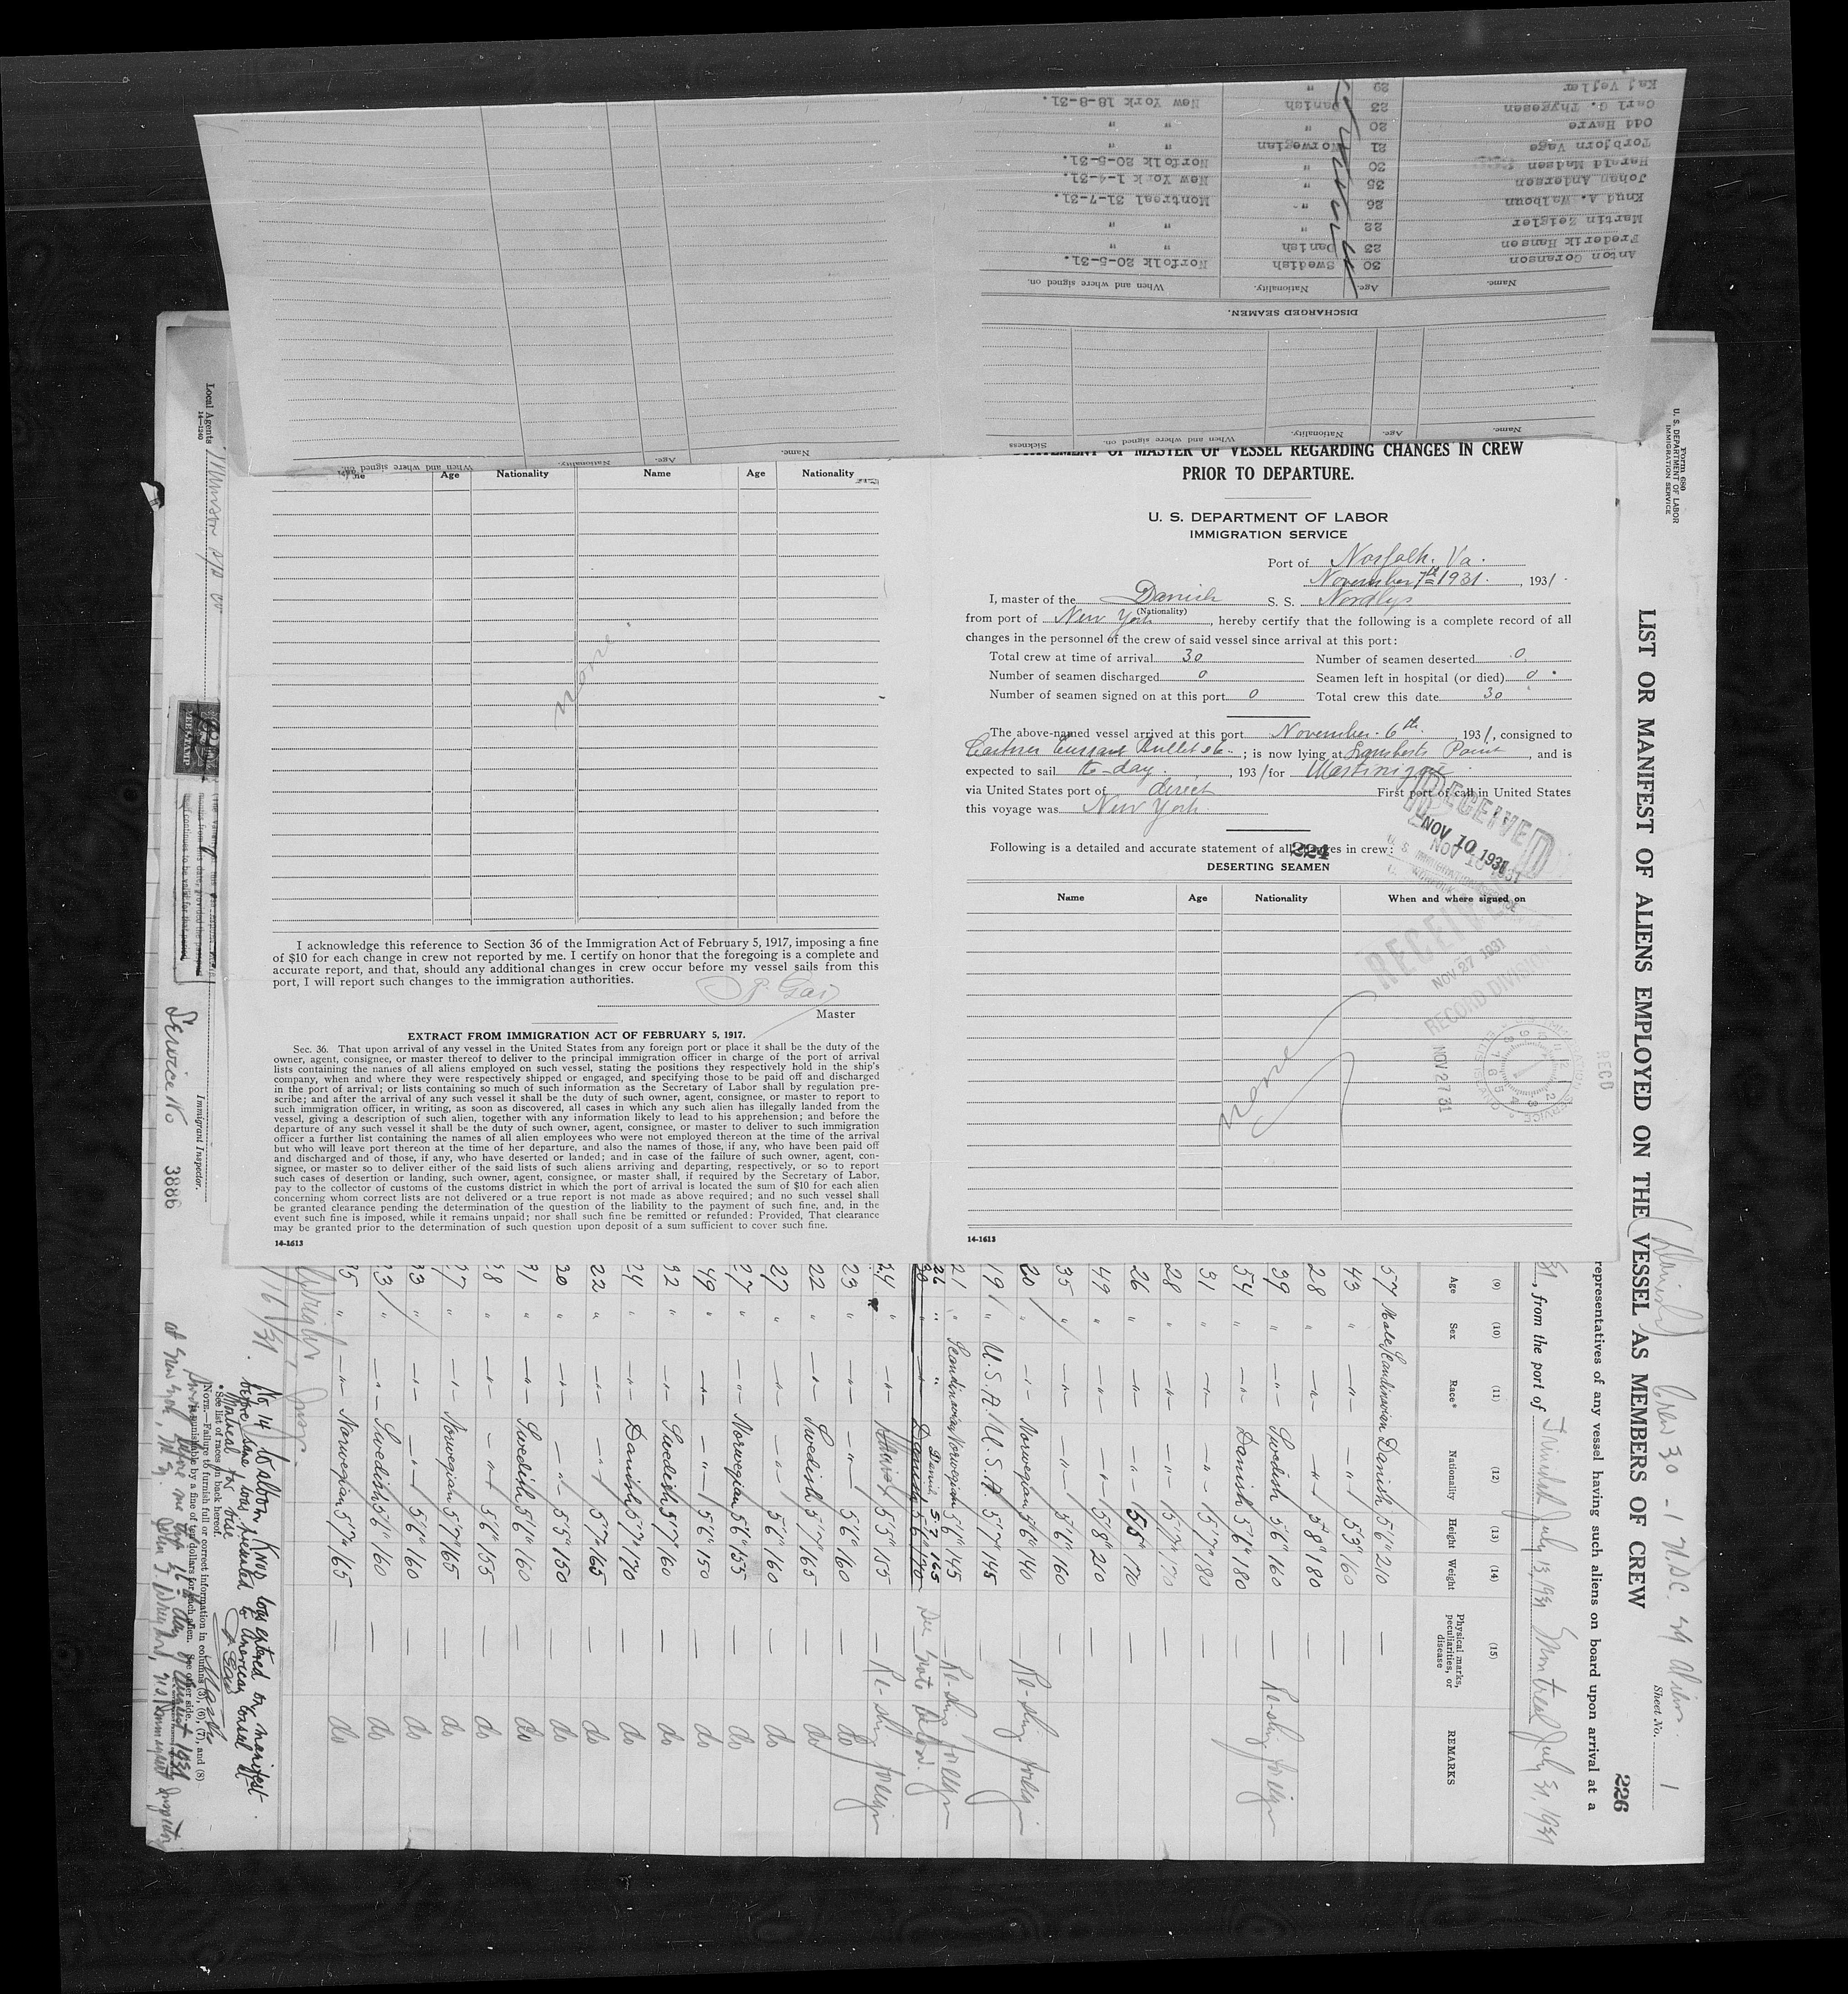 DISCHARGED SEAMEN.
Name. Age. Nationality. When and where signed on.
Anton Goranson 30 Swedish Norfolk 20-5-31.
Frederik Hansen 23 Danish " "
Martin Zeigler 22 " " "
Knud A. Walboun 26 " Montreal 31-7-31.
Johan Andersen 35 " New York 1-4-31.
Harald Madsen 30 " Norfolk 20-5-31.
Torbjorn Vage 21 Norwegian " "
Odd Havre 20 " " "
Carl G. Thygesen 23 Danish New York 18-8-31.
Kaj Vejler 29 "
Name. Age. Nationality. When and where signed on. Sickness
Name. Age. Nationality. When and where signed on.
STATEMENT OF MASTER OF VESSEL REGARDING CHANGES IN CREW
PRIOR TO DEPARTURE.
U. S. DEPARTMENT OF LABOR
IMMIGRATION SERVICE
Port of Norfolk. Va.
November 7th 1931. , 1931.
I, master of the Danish S. S. Nordlys
(Nationality)
from port of New York , hereby certify that the following is a complete record of all
changes in the personnel of the crew of said vessel since arrival at this port:
Total crew at time of arrival 30 Number of seamen deserted 0
Number of seamen discharged 0 Seamen left in hospital (or died) 0
Number of seamen signed on at this port 0 Total crew this date 30
The above-named vessel arrived at this port November. 6th , 1931, consigned to
; is now lying at Lamberts Point , and is
expected to sail to-day , 1931 for Martinique
via United States port of direct First port of call in United States
this voyage was New York.
Following is a detailed and accurate statement of all changes in crew:
224
DESERTING SEAMEN
Name Age Nationality When and where signed on
none
RECEIVED
NOV 10 1931
RECEIVED
NOV 27 1931
RECORD DIVISION
NOV 27 31
REC'D
14-1613
Name Age Nationality Name Age Nationality
none.
I acknowledge this reference to Section 36 of the Immigration Act of February 5, 1917, imposing a fine
of $10 for each change in crew not reported by me. I certify on honor that the foregoing is a complete and
accurate report, and that, should any additional changes in crew occur before my vessel sails from this
port, I will report such changes to the immigration authorities.
Master
EXTRACT FROM IMMIGRATION ACT OF FEBRUARY 5, 1917.
Sec. 36. That upon arrival of any vessel in the United States from any foreign port or place it shall be the duty of the
owner, agent, consignee, or master thereof to deliver to the principal immigration officer in charge of the port of arrival
lists containing the names of all aliens employed on such vessel, stating the positions they respectively hold in the ship's
company, when and where they were respectively shipped or engaged, and specifying those to be paid off and discharged
in the port of arrival; or lists containing so much of such information as the Secretary of Labor shall by regulation pre-
scribe; and after the arrival of any such vessel it shall be the duty of such owner, agent, consignee, or master to report to
such immigration officer, in writing, as soon as discovered, all cases in which any such alien has illegally landed from the
vessel, giving a description of such alien, together with any information likely to lead to his apprehension; and before the
departure of any such vessel it shall be the duty of such owner, agent, consignee, or master to deliver to such immigration
officer a further list containing the names of all alien employees who were not employed thereon at the time of the arrival
but who will leave port thereon at the time of her departure, and also the names of those, if any, who have been paid off
and discharged and of those, if any, who have deserted or landed; and in case of the failure of such owner, agent, con-
signee, or master so to deliver either of the said lists of such aliens arriving and departing, respectively, or so to report
such cases of desertion or landing, such owner, agent, consignee, or master shall, if required by the Secretary of Labor,
pay to the collector of customs of the customs district in which the port of arrival is located the sum of $10 for each alien
concerning whom correct lists are not delivered or a true report is not made as above required; and no such vessel shall
be granted clearance pending the determination of the question of the liability to the payment of such fine, and, in the
event such fine is imposed, while it remains unpaid; nor shall such fine be remitted or refunded: Provided, That clearance
may be granted prior to the determination of such question upon deposit of a sum sufficient to cover such fine.
14-1613
Form 680
U. S. DEPARTMENT OF LABOR
IMMIGRATION SERVICE
(Danish) Crew 30 - 1 U.S.C. 29 Aliens.
Sheet No. 1
LIST OR MANIFEST OF ALIENS EMPLOYED ON THE VESSEL AS MEMBERS OF CREW
226
representatives of any vessel having such aliens on board upon arrival at a
31, from the port of Trinidad July 13, 1931 Montreal July 31. 1931
(9) (10) (11) (12) (13) (14) (15)
Age Sex Race* Nationality Height Weight Physical marks, peculiarities, or disease REMARKS
57 Male Scandinavian Danish 5'6" 210 —
43 " " " 5'3" 160 —
28 " " " 5'8" 180 —
39 " " Swedish 5'6" 160 — Re-ship foreign
54 " " Danish 5'6" 180 —
31 " " " 5'7" 180 —
28 " " " 5'7" 170 —
26 " " " 5'5" 170 —
49 " " " 5'8" 210 —
35 " " " 5'6" 160 —
20 " " Norwegian 5'6" 140 — Re-ship foreign
19 " U.S.A. U.S.A. 5'7" 145 —
21 " Scandinavian Norwegian 5'6" 145 — Re-ship foreign
26 " " Danish 5'7" 165
30 " " Danish 5'6" 170 See Note below.
24 " " 5'5" 155 — Re-ship foreign
23 " " " 5'6" 160 — do
22 " " Swedish 5'7" 165 — do
27 " " " 5'6" 160 — do
27 " " Norwegian 5'6" 155 — do
49 " " " 5'6" 150 — do
32 " " Swedish 5'7" 160 — do
24 " " Danish 5'7" 170 — do
22 " " " 5'7" 165 — do
30 " " " 5'5" 150 — do
31 " " Swedish 5'6" 160 — do
38 " " " 5'6" 155 — do
27 " " Norwegian 5'7" 165 — do
33 " " " 5'6" 160 — do
23 " " Swedish 5'6" 160 — do
35 " " Norwegian 5'7" 165 — do
No. 14 KNUD was entered on manifest
before same was presented to American Consul at
Montreal for vise
* See list of races on back hereof.
NOTE.—Failure to furnish full or correct information in columns (3), (6), (7), and (8)
is punishable by a fine of ten dollars for each alien. See other side.
Sworn before me this day of August 1931
at New York, N.Y.
Immigrant Inspector.
Service No 3886
FEE STAMP
Local Agents Munson S/S Co
14-1240